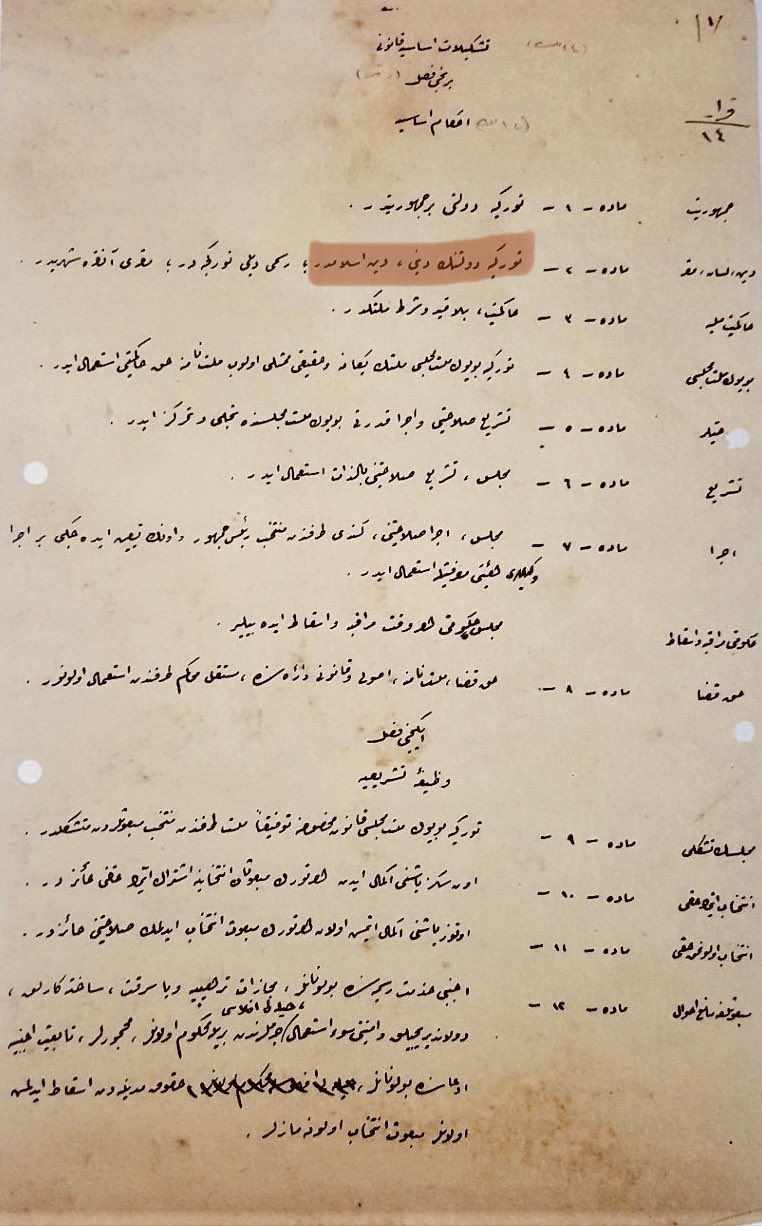 ١
تشكيلات اساسيه قانونى
برنجى فصل
احكام اساسيه
قرار
١٤
جمهوريت ماده - ١ - توركيه دولتى بر جمهوريتدر .
دين، لسان، مقر ماده - ٢ - توركيه دولتنك دينى، دين اسلامدر؛ رسمى ديلى توركجه در؛ مقرى آنقره شهريدر .
حاكميت مليه ماده - ٣ - حاكميت، بلا قيد و شرط ملتكدر .
بويوك ملت مجلسى ماده - ٤ - توركيه بويوك ملت مجلسى ملتك يكانه و حقيقى ممثلى اولوب ملت نامنه حق حاكميتى استعمال ايدر .
ماده - ٥ - تشريع صلاحيتى و اجرا قدرتى بويوك ملت مجلسنده تجلى و تمركز ايدر .
تشريع ماده - ٦ - مجلس، تشريع صلاحيتنى بالذات استعمال ايدر .
اجرا ماده - ٧ - مجلس، اجرا صلاحيتنى، كندى طرفندن منتخب رئيس جمهور و اونك تعيين ايده جكى بر اجرا
وكيللرى هيئتى معرفتيله استعمال ايدر .
حكومتى مراقبه و اسقاط مجلس حكومتى هر وقت مراقبه و اسقاط ايده بيلير .
حق قضا ماده - ٨ - حق قضا، ملت نامنه، اصولى و قانونى دائره سنده، مستقل محاكم طرفندن استعمال اولونور .
ايكنجى فصل
وظيفۀ تشريعيه
مجلسك تشكلى ماده - ٩ - توركيه بويوك ملت مجلسى قانون مخصوصنه توفيقاً ملت طرفندن منتخب مبعوثلردن متشكلدر .
انتخاب ايتمه حقى ماده - ١٠ - اون سكز ياشنى اكمال ايدن هر تورك مبعوثان انتخابنه اشتراك ايتمك حقنى حائزدر .
انتخاب اولونمق حقى ماده - ١١ - اوتوز ياشنى اكمال ايتمش اولان هر تورك مبعوث انتخاب ايدلمك صلاحيتنى حائزدر .
مبعوثلغه مانع احوال ماده - ١٢ - اجنبى خدمت رسميه سنده بولونانلر، مجازات ترهيبيه ويا سرقت، ساخته كارلق،
دولانديريجيلق و امنيتى سوء استعمال، حيله لى افلاس جرملرندن بريله محكوم اولانلر، محجورلر، تابعيت اجنبيه
ادعاسنده بولونانلر، حقوق مدنيه دن اسقاط ايدلمش
اولانلر مبعوث انتخاب اولونه مازلر .